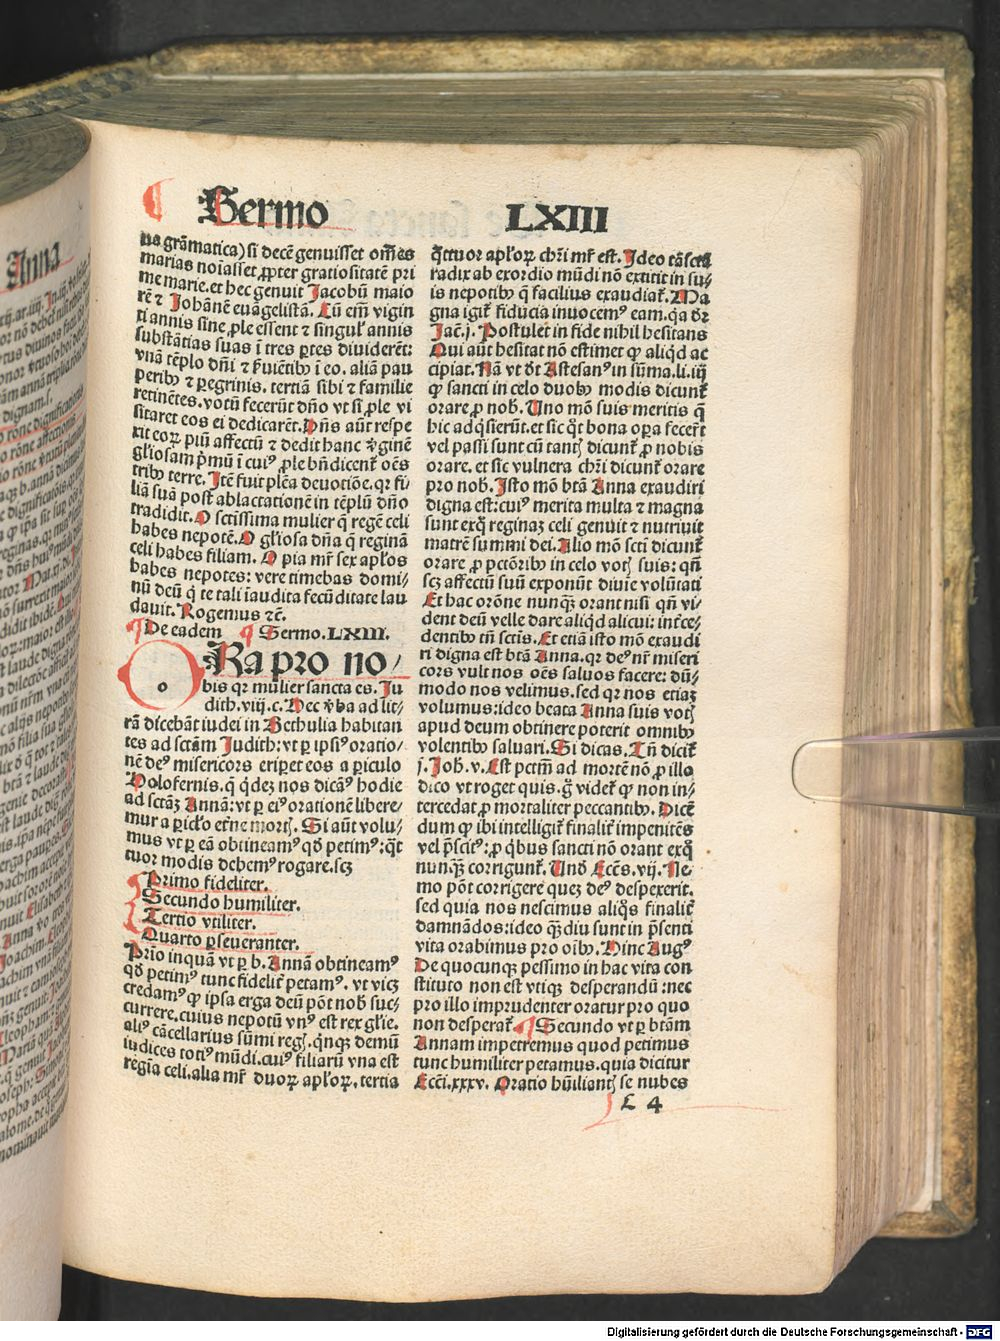 Sermo LXIII
ius grãmatica) si decẽ genuisset om̃es
marias noĩasset ꝓpter gratiositatẽ pri
me marie. et hec genuit Jacobũ maio
rẽ ⁊ Johãnẽ euãgelistã. Cũ em̃ vigin
ti annis sine ꝓle essent ⁊ singul' annis
substãtias suas ĩ tres ꝑtes diuiderẽt:
vnã tẽplo dñi ⁊ ẜuiẽtibꝫ ĩ eo. aliã pau
peribꝫ ⁊ ꝑegrinis. tertiã sibi ⁊ familie
retinẽtes. votũ fecerũt dño vt si ꝓle vi
sitaret eos ei dedicarẽt. Dñs aũt respe
xit eoꝝ piũ affectũ ⁊ dedit hanc ꝟginẽ
gl'iosam p̃mũ ĩ cuiꝰ ꝓle bñdicent᷑ oẽs
tribꝫ terre. Itẽ fuit plẽa deuotiõe. qꝛ fi
liã suã post ablactationẽ in tẽplũ dño
tradidit. O sctissima mulier q̃ regẽ celi
habes nepotẽ. O gl'iosa dña q̃ reginã
celi habes filiam. O pia mr̃ sex apl'os
habes nepotes: vere timebas domi⸗
nũ deũ q̃ te tali iaudita fecũditate lau
dauit. Rogemus ⁊c̃.
¶ De eadem ¶ Sermo. LXIII.
ORa pro no⸗
bis qꝛ mulier sancta es. Ju
dith. viij. c. Hec ꝟba ad lit⸗
rã dicebãt iudei in Bethulia habitan
tes ad sctãm Judith: vt ꝑ ipsiꝰ oratio⸗
nẽ deꝰ misericors eriꝑet eos a ꝑiculo
Holofernis. q̃ q̇dez nos dicãꝰ hodie
ad sctãꝫ Annã: vt ꝑ eiꝰ orationẽ libere⸗
mur a ꝑicl'o et'ne mortꝭ. Si aũt volu⸗
mus vt ꝑ eã obtineamꝰ qð petimꝰ: q̃t
tuor modis debemꝰ rogare. scꝫ
Primo fideliter.
Secundo humiliter.
Tertio vtiliter.
Quarto ꝑseueranter.
Prĩo inquã vt ꝑ b. Annã obtineamꝰ
qð petimꝰ tunc fidelit᷑ petamꝰ. vt vicꝫ
credamꝰ ꝙ ipsa erga deũ põt nob̃ suc⸗
currere. cuius nepotũ vnꝰ est rex gl'ie.
aliꝰ cãcellarius sũmi regꝭ. q̇nqꝫ demũ
iudices totiꝰ mũdi. cuiꝰ filiarũ vna est
regia celi. alia mr̃ duoꝝ apl'oꝝ. tertia
q̃ttuor apl'oꝝ chr̃i mr̃ est. Ideo tã sctã
radix ab exordio mũdi nõ extitit in su⸗
is nepotibꝫ q̃ facilius exaudiat᷑. Ma
gna igit᷑ fiducia inuocemꝰ eam. q̃a dr̃
Jac̃. j. Postulet in fide nihil hesitans
Qui aũt hesitat nõ estimet ꝙ aliq̇d ac
cipiat. Nã vt dt̃ Astesanꝰ in sũma. li. iiij
ꝙ sancti in celo duobꝫ modis dicunt᷑
orare ꝓ nob̃. Uno mõ suis meritis q̃
hic adq̇sierũt. et sic q̇t bona oꝑa fecer̃t
vel passi sunt cũ tantꝭ dicunt᷑ ꝓ nobis
orare. et sic vulnera chr̃i dicunt᷑ orare
pro nob̃. Isto mõ btã Anna exaudiri
digna est: cuiꝰ merita multa ⁊ magna
sunt exq̃ reginaꝫ celi genuit ⁊ nutriuit
matrẽ summi dei. Alio mõ sctĩ dicunt᷑
orare ꝓ pctõribꝫ in celo votꝭ suis: qñ
scꝫ affectũ suũ exponũt diuie volũtati
Et hac orõne nunqꝫ orant nisi qñ vi⸗
dent deũ velle dare aliq̇d alicui: int'ce⸗
dentibꝫ tñ sctis. Et etiã isto mõ exaudi
ri digna est btã Anna. qꝛ deꝰ nr̃ miseri
cors vult nos oẽs saluos facere: dũ⸗
modo nos velimus. sed qꝛ nos etiaꝫ
volumus: ideo beata Anna suis votꝭ
apud deum obtinere poterit omnibꝫ
volentibꝫ saluari. Si dicas. Tñ dicit᷑
j. Joh̃. v. Est pctm̃ ad mortẽ nõ ꝓ illo
dico vt roget quis. g̊ videt᷑ ꝙ non in⸗
tercedat ꝓ mortaliter peccantibꝫ. Dicẽ
dum ꝙ ibi intelligit᷑ finalit᷑ impenitẽs
vel p̃scitꝰ: ꝓ q̇bus sancti nõ orant exq̃
nunqꝫ corrigunt᷑. Und̃ Ecc̃s. vij. Ne⸗
mo põt corrigere queꝫ deꝰ despexerit.
sed quia nos nescimus aliq̃s finalit᷑
damnãdos: ideo qꝫdiu sunt in p̃senti
vita orabimus pro oĩbꝫ. Hinc Augꝰ
De quocunqꝫ pessimo in hac vita con
stituto non est vtiqꝫ desperandũ: nec
pro illo imprudenter oratur pro quo
non desperat᷑. ¶ Secundo vt ꝑ btãm
Annam impetremus quod petimus
tunc humiliter petamus. quia dicitur
Ecc̃i. xxxv. Oratio hũiliantꝭ se nubes
L 4
Anna
Digitalisierung gefördert durch die Deutsche Forschungsgemeinschaft - DFG